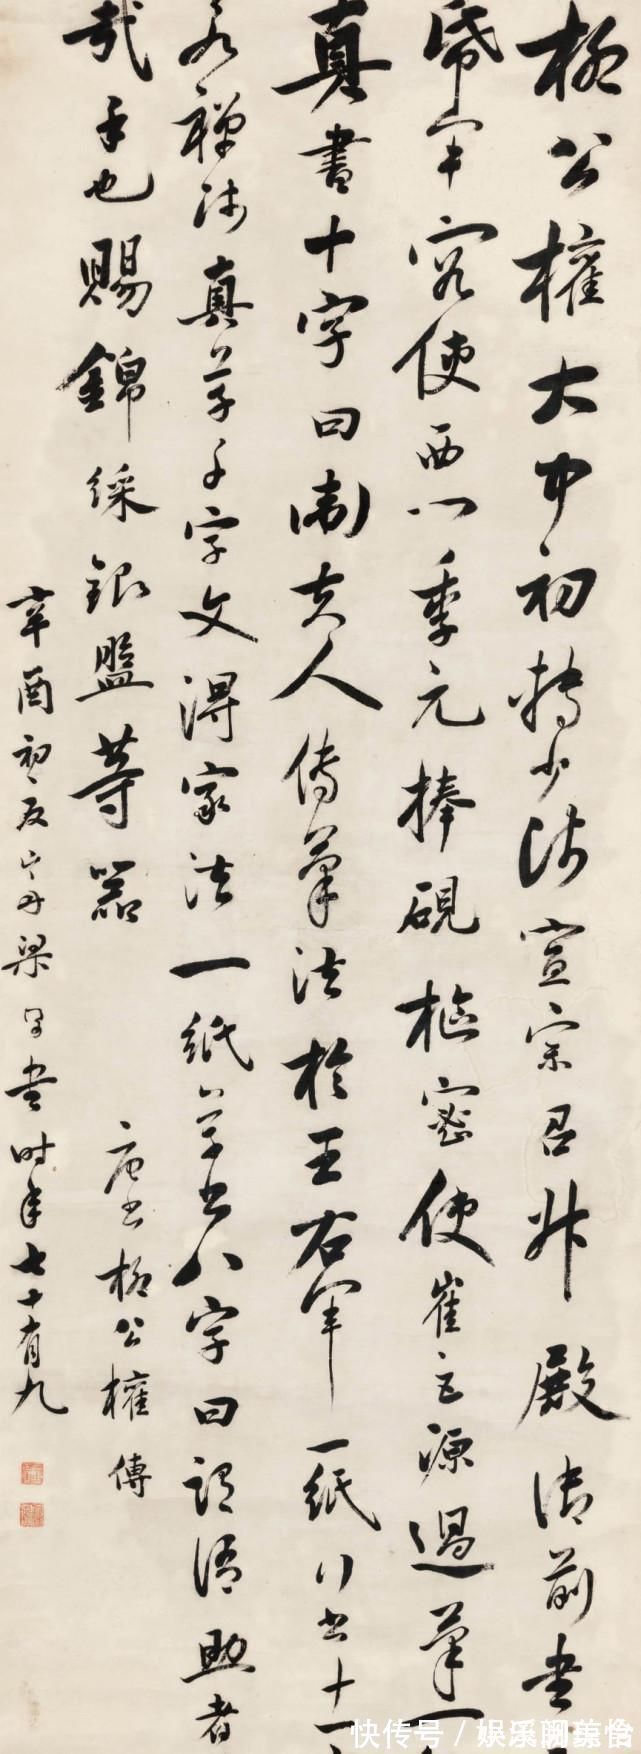 柳公權大中初轉少師宣宗召升殿御前書
帋軍容使西門季元捧硯樞密使崔巨源過筆一
真書十字曰衛夫人傳筆法於王右軍一紙行書十一
永禪師真草千字文得家法一紙草書八字曰謂語助者
哉乎也賜錦綵銀盤等器
唐書柳公權傳
辛酉初夏山舟梁同書時年七十有九
快传号 /